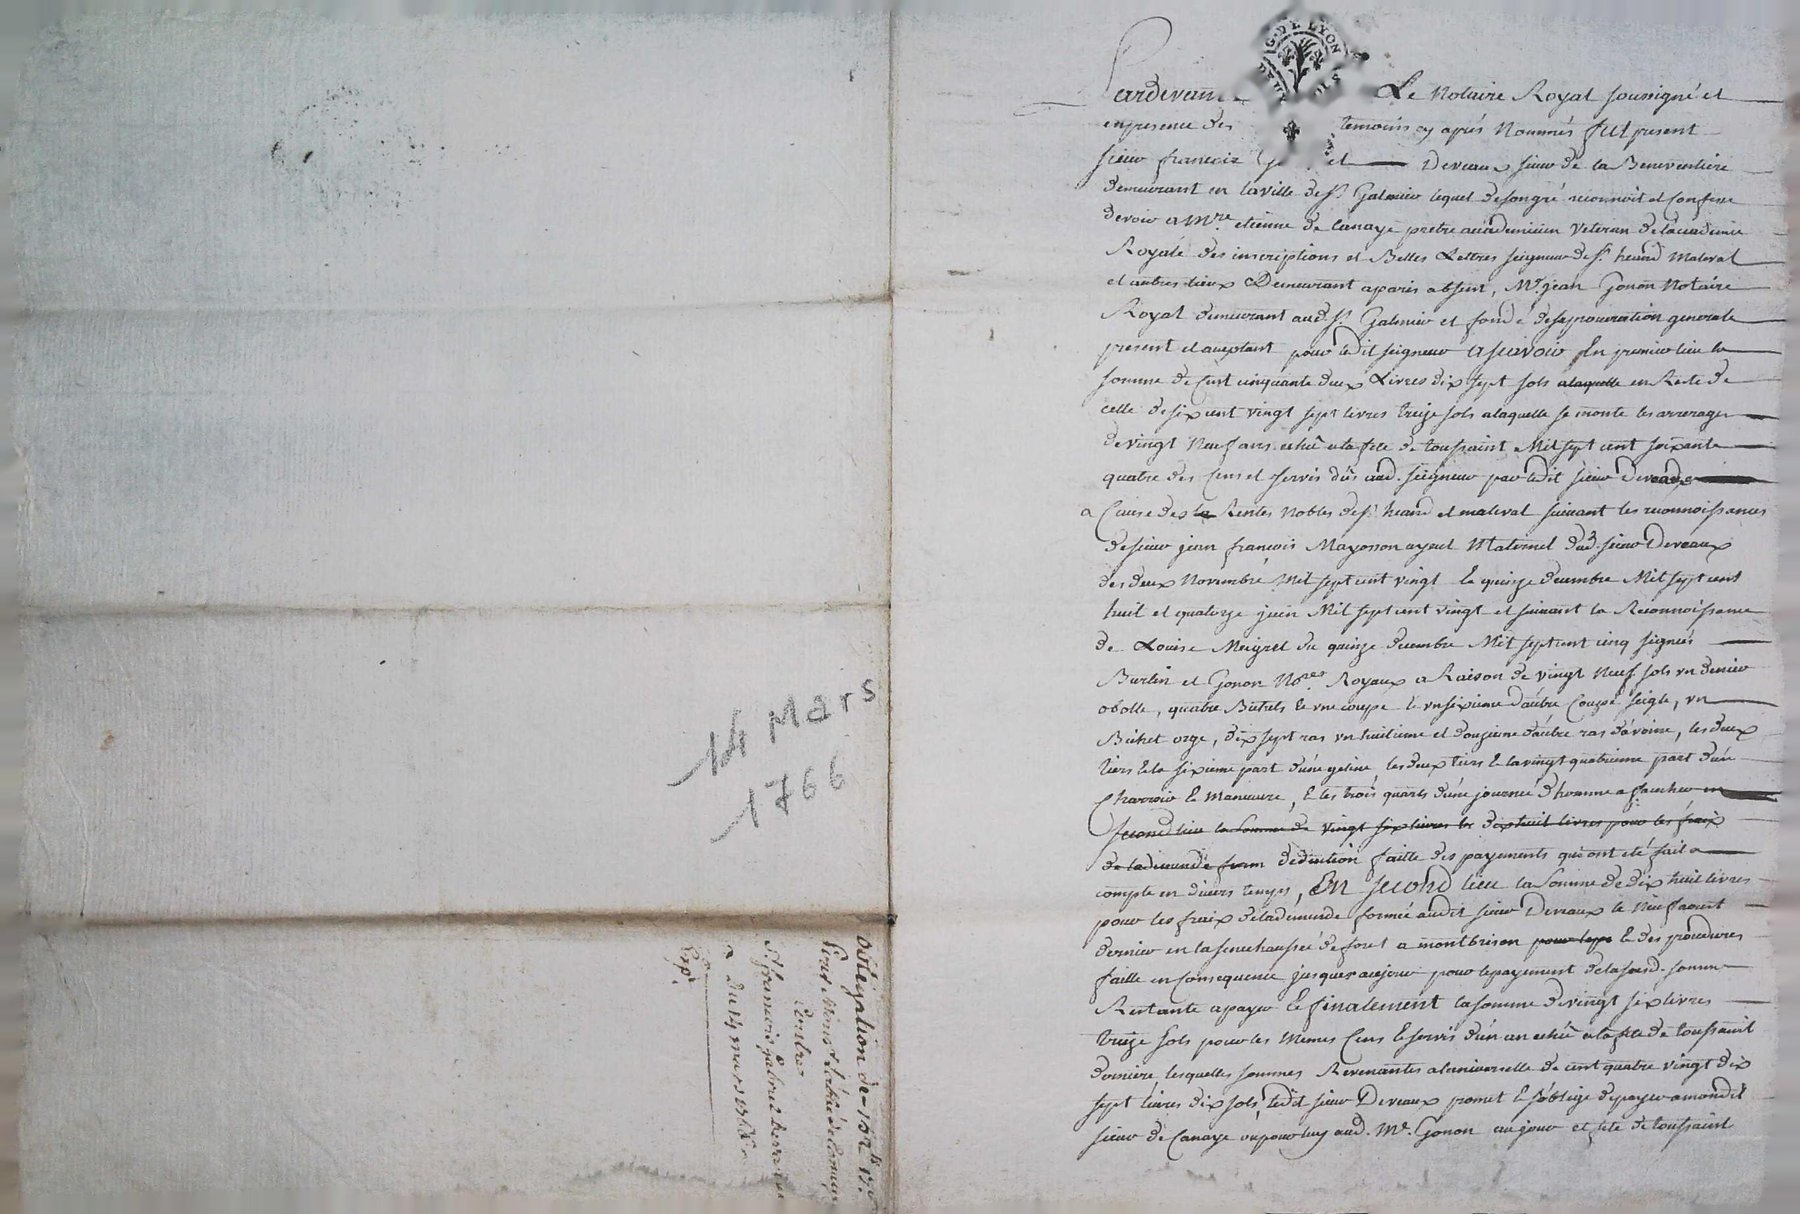 14 Mars
1766
obligation de 152 ll 17 s
Pour Messire l'abbé de Canaye
Contre
Sr francois gabriel Deveaux
du 14 mars 1766
Expé.
G. DE LYON
Pardevant Le Notaire Royal soussigné et
en presence des temoins cy aprés Nommés fut present
sieur francois Deveaux sieur de la Beneventiere
demeurant en la ville de St. Galmier lequel de son gré reconnoit et confesse
devoir a Mre. etienne de Canaye pretre academicien Veteran de l'academie
Royale des inscriptions et Belles Lettres seigneur de St. heand Maleval
et autres lieux Demeurant a paris absent, Mr. jean Gonon Notaire
Royal demeurant aud. St. Galmier et fondé de sa procuration generale
present et acceptant pour ledit seigneur a scavoir En premier lieu la
somme de Cent cinquante deux Livres dix sept sols alaquelle en Reste de
celle de six cent vingt sept livres treize sols alaquelle se monte les arrerages
de vingt Neuf ans echu a la fete de toussaint Mil sept cent soixante
quatre des Cens et servis dûs aud. seigneur par ledit sieur Deveaux
a Cause des la Rentes Nobles de St. heand et maleval suivant les reconnoissances
de sieur jean francois Mayosson ayeul Maternel dud. sieur Deveaux
des deux Novembre Mil sept cent vingt le quinze decembre Mil sept cent
huit et quatorze juin Mil sept cent vingt et suivant la Reconnoissance
de Louise Meyret du quinze decembre Mil sept cent cinq signés
Burlin et Gonon Nores. Royaux a Raison de vingt Neuf sols un denier
obolle, quatre Bichets & une coupe & un sixieme d'autre Coupe seigle, un
Bichet orge, dix sept ras un huitieme et douzieme d'autre ras d'avoine, les deux
tiers & la sixieme part d'une geline les deux tiers & la vingt quatrieme part d'un
Charroir & Maneuvre, & les trois quarts d'une journée d'homme a faucher en
second lieu la somme de vingt six livres les dix huit livres pour les fraix
de la demande form deduction faitte des payements qui ont eté fait a
compte en divers temps, En second lieu la somme de dix huit livres
pour les fraix de la demande formée audit sieur Deveaux le Neuf aoust
dernier en la senechaussée de foret a montbrison pour laps & des procedures
faitte en Consequence jusques aujour pour le payement de la susd. somme
Restante a payer & finalement la somme de vingt six livres
treize sols pour les Memes Cens & servis d'un an echû a la fete de toussaint
derniere lesquelles sommes Revenantes a l'universelle de cent quatre vingt dix
sept livres dix sols, ledit sieur Deveaux promet & s'oblige de payer a mondit
sieur de Canaye ou pour luy aud. Me. Gonon au jour et fete de toussaint